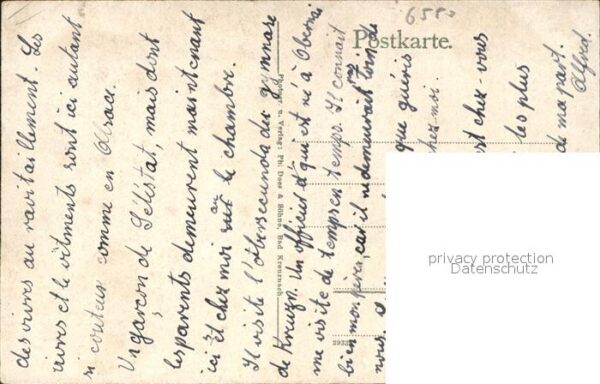 des vivres au ravitaillement. Les
vivres et le vêtments sont ici autant
si couteux comme en Alsace.
Un garçon de Sélistat, mais dont
les parents demeurent maintenant
ici et chez moi au le chambre.
Il visite l'Obersecunda du gymnase
de Kreuzn. Un officier d qui est né à Obernai
me visite de temps en temps. Il connait
bien mon père, car il ne demeurait pas loin de
nous.
que guéris
chez moi.
est chez vous
les plus
de ma part.
Alfred.
Postkarte.
6580
Photogr. u. Verlag: Ph. Doss & Söhne, Bad Kreuznach.
privacy protection
Datenschutz